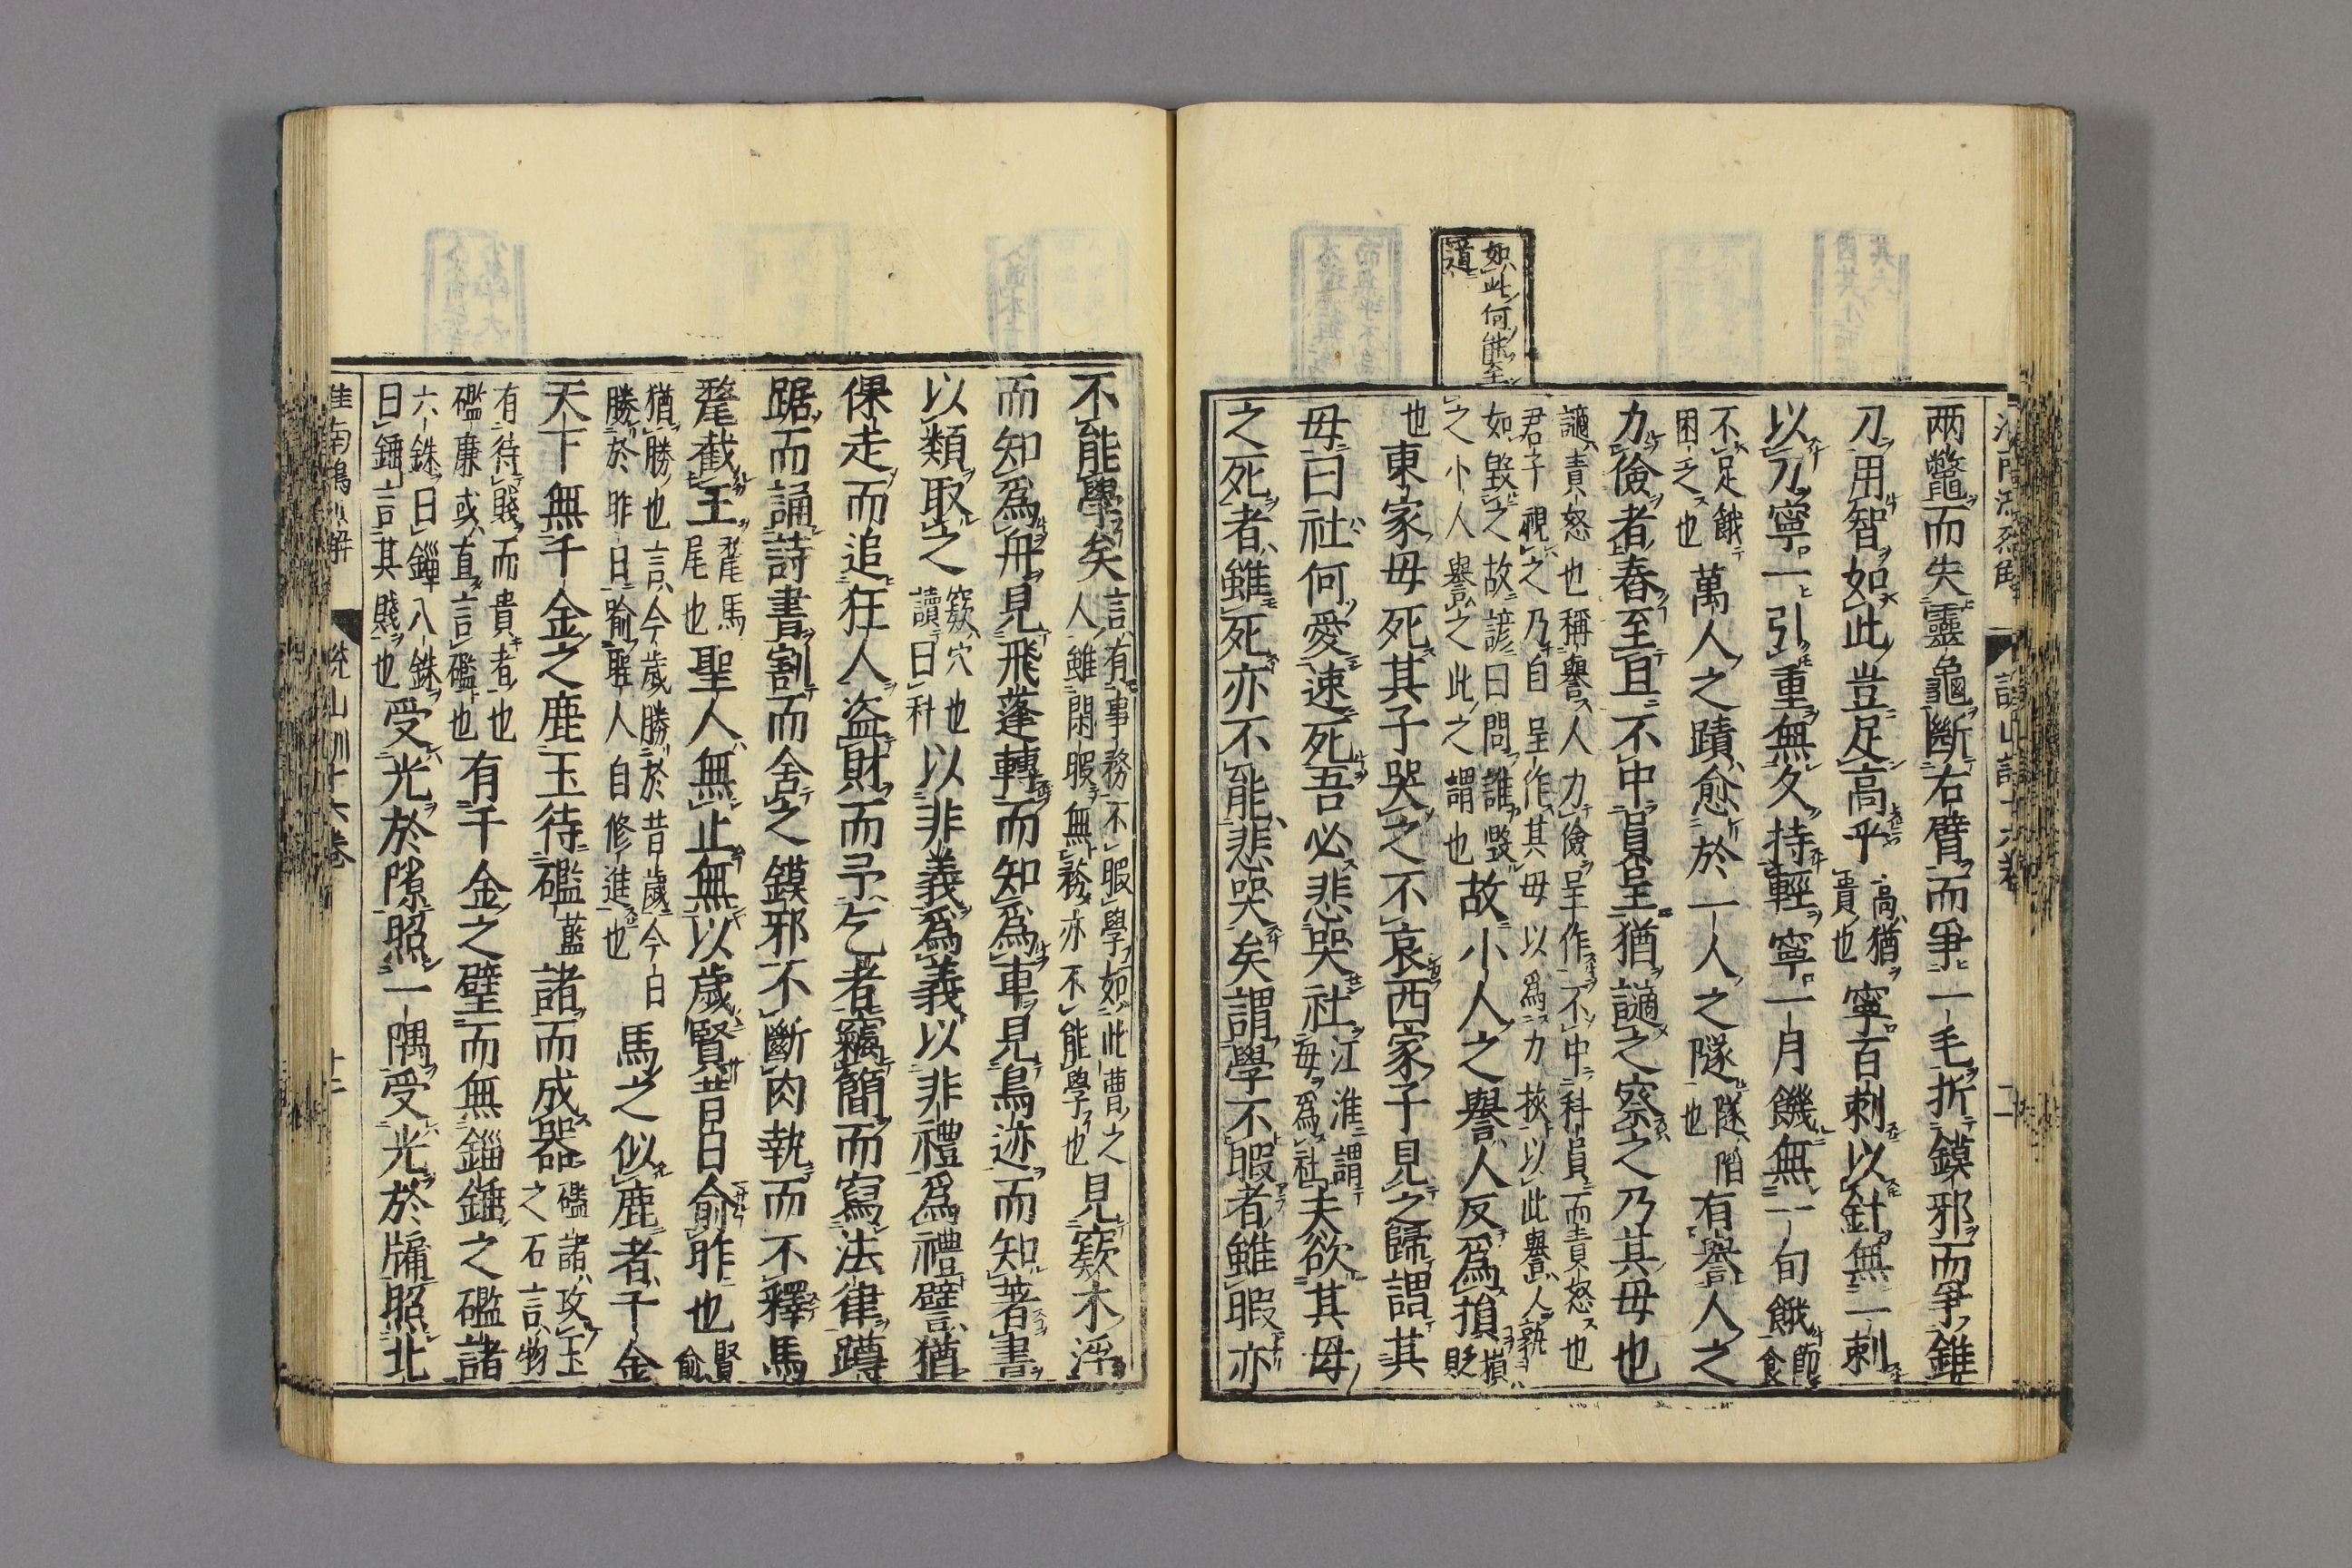 如此何能至
道
兩鼈而失靈龜斷右臂而爭一毛折鏌邪而爭錐
刀用智如此豈足高乎高猶貴也寧百刺以針無一刺
以刀寧一引重無久持輕寧一月饑無一旬餓節食
不足餓困乏也萬人之蹟愈於一人之隧隧陷也有譽人之
力儉者舂至旦不中員呈猶讁之察之乃其母也
讁責怒也稱譽人力儉呈作不中科員而責怒也
君子視之乃自呈作其母以為力挾以此譽人孰
如毀之故諺曰問誰毀之小人譽之此之謂也故小人之譽人反爲損損貶
也東家母死其子哭之不哀西家子見之歸謂其
母曰社何愛速死吾必悲哭社江淮謂母爲社夫欲其母
之死者雖死亦不能悲哭矣謂學不暇者雖暇亦
不能學矣言有事務不暇學如此曹之人雖閑暇無務亦不能學也見窾木浮
而知爲舟見飛蓬轉而知爲車見鳥迹而知著書
以類取之窾穴也讀曰科以非義爲義以非禮爲禮譬猶
倮走而追狂人盜財而予乞者竊簡而寫法律蹲
踞而誦詩書割而舍之鏌邪不斷肉執而不釋馬
氂截玉氂馬尾也聖人無止無以歲賢昔日俞昨也賢俞
猶勝也言今歲勝於昔歲今日勝於昨日喻聖人自修進也馬之似鹿者千金
天下無千金之鹿玉待礛藍諸而成器礛諸攻玉之石言物
有待賤而貴者也礛廉或直言礛也有千金之璧而無錙錘之礛諸
六銖曰錙八銖曰錘言其賤也受光於隙照一隅受光於牖照北